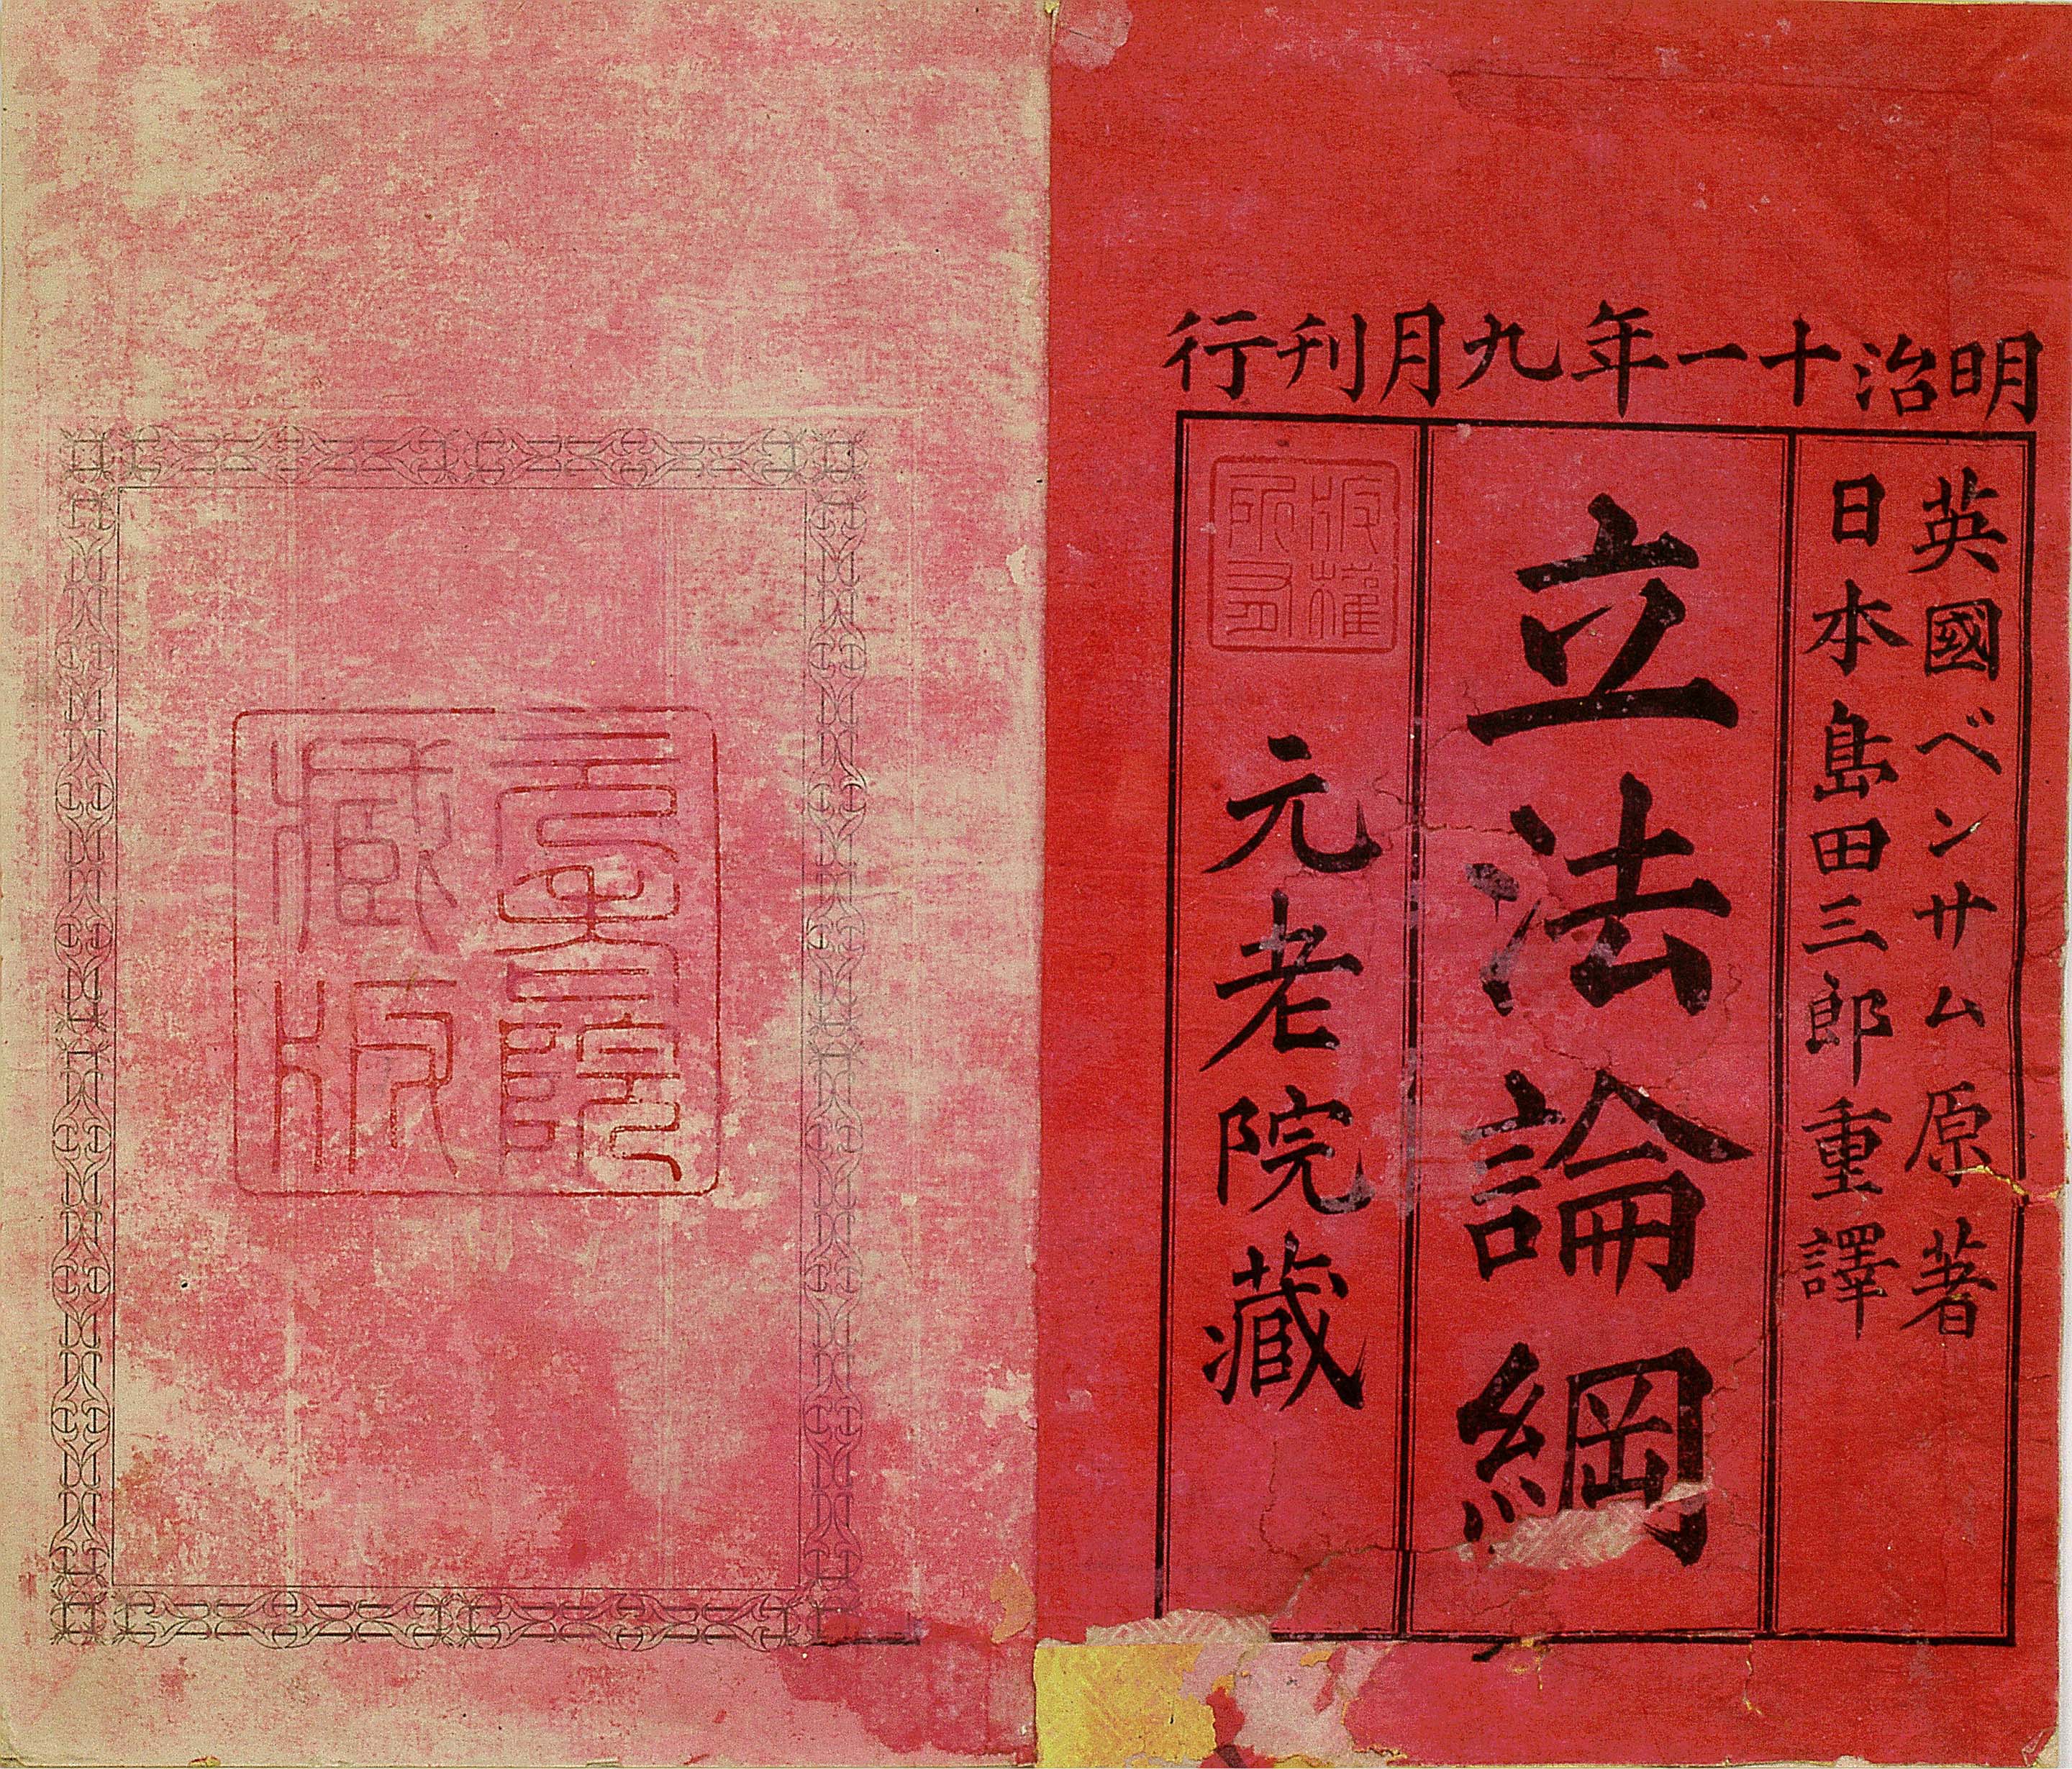 明治十一年九月刊行
英國ベンサム原著
日本島田三郎重譯
立法論綱
版權
所有
元老院藏
元老院
藏版